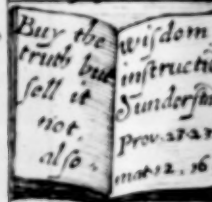 Buy the
truth but
sell it
not,
also
wisdom
instructi
& understan
Prov. 23 23
mat 12, 16